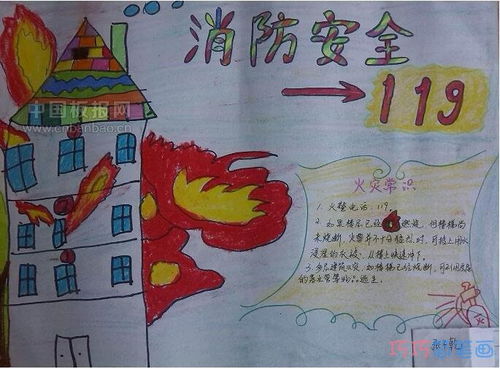 消防安全
119
中国板报网
www.cnbanbao.cn
火灾常识
1. 火警电话：119。
2. 如果楼层已经 燃烧，但楼梯尚
未烧断，火势并不十分猛烈时，可披上用水
浸湿的衣被，从楼上快速冲下。
3. 多层建筑火灾，如楼梯已经烧断，可利用房屋
的落水管等物品逃生。
火
巧巧简笔画